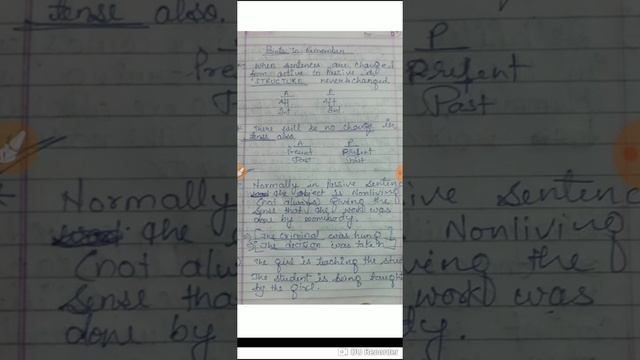 Points to Remember
When sentences are changed
from active to passive the
STRUCTURE never changed
A P
Aff Aff
Int Int
There will be no change in
tense also.
A P
Present Present
Past Past
Normally in Passive Sentenc
the object is Nonliving
(not always) giving the
sense that the work was
done by somebody.
[The criminal was hung]
[The decision was taken]
The girl is teaching the stud
The student is being taught
by the girl.
tense also.
P
Pre Present
Past
Normally ive Sentenc
the Nonliving
(not alw ving the
sense tha work was
done by dy.
DU Recorder